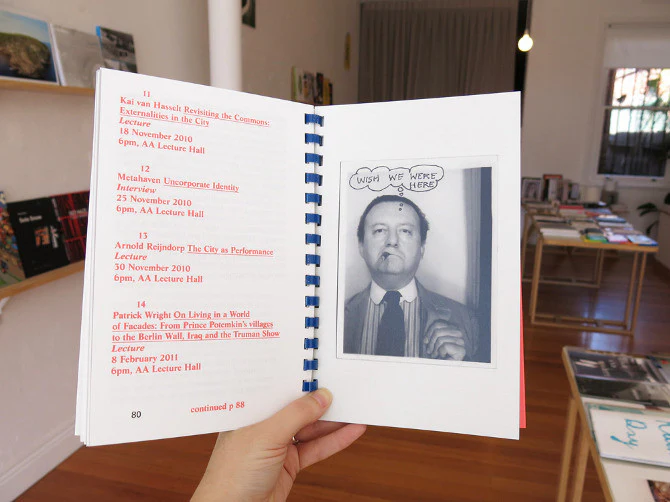 11
Kai van Hasselt Revisiting the Commons:
Externalities in the City
Lecture
18 November 2010
6pm, AA Lecture Hall
12
Metahaven Uncorporate Identity
Interview
25 November 2010
6pm, AA Lecture Hall
13
Arnold Reijndorp The City as Performance
Lecture
30 November 2010
6pm, AA Lecture Hall
14
Patrick Wright On Living in a World
of Facades: From Prince Potemkin's villages
to the Berlin Wall, Iraq and the Truman Show
Lecture
8 February 2011
6pm, AA Lecture Hall
80
continued p 88
WISH WE WERE
HERE